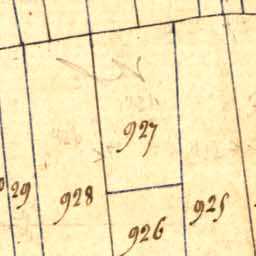 927
29
928
925
926